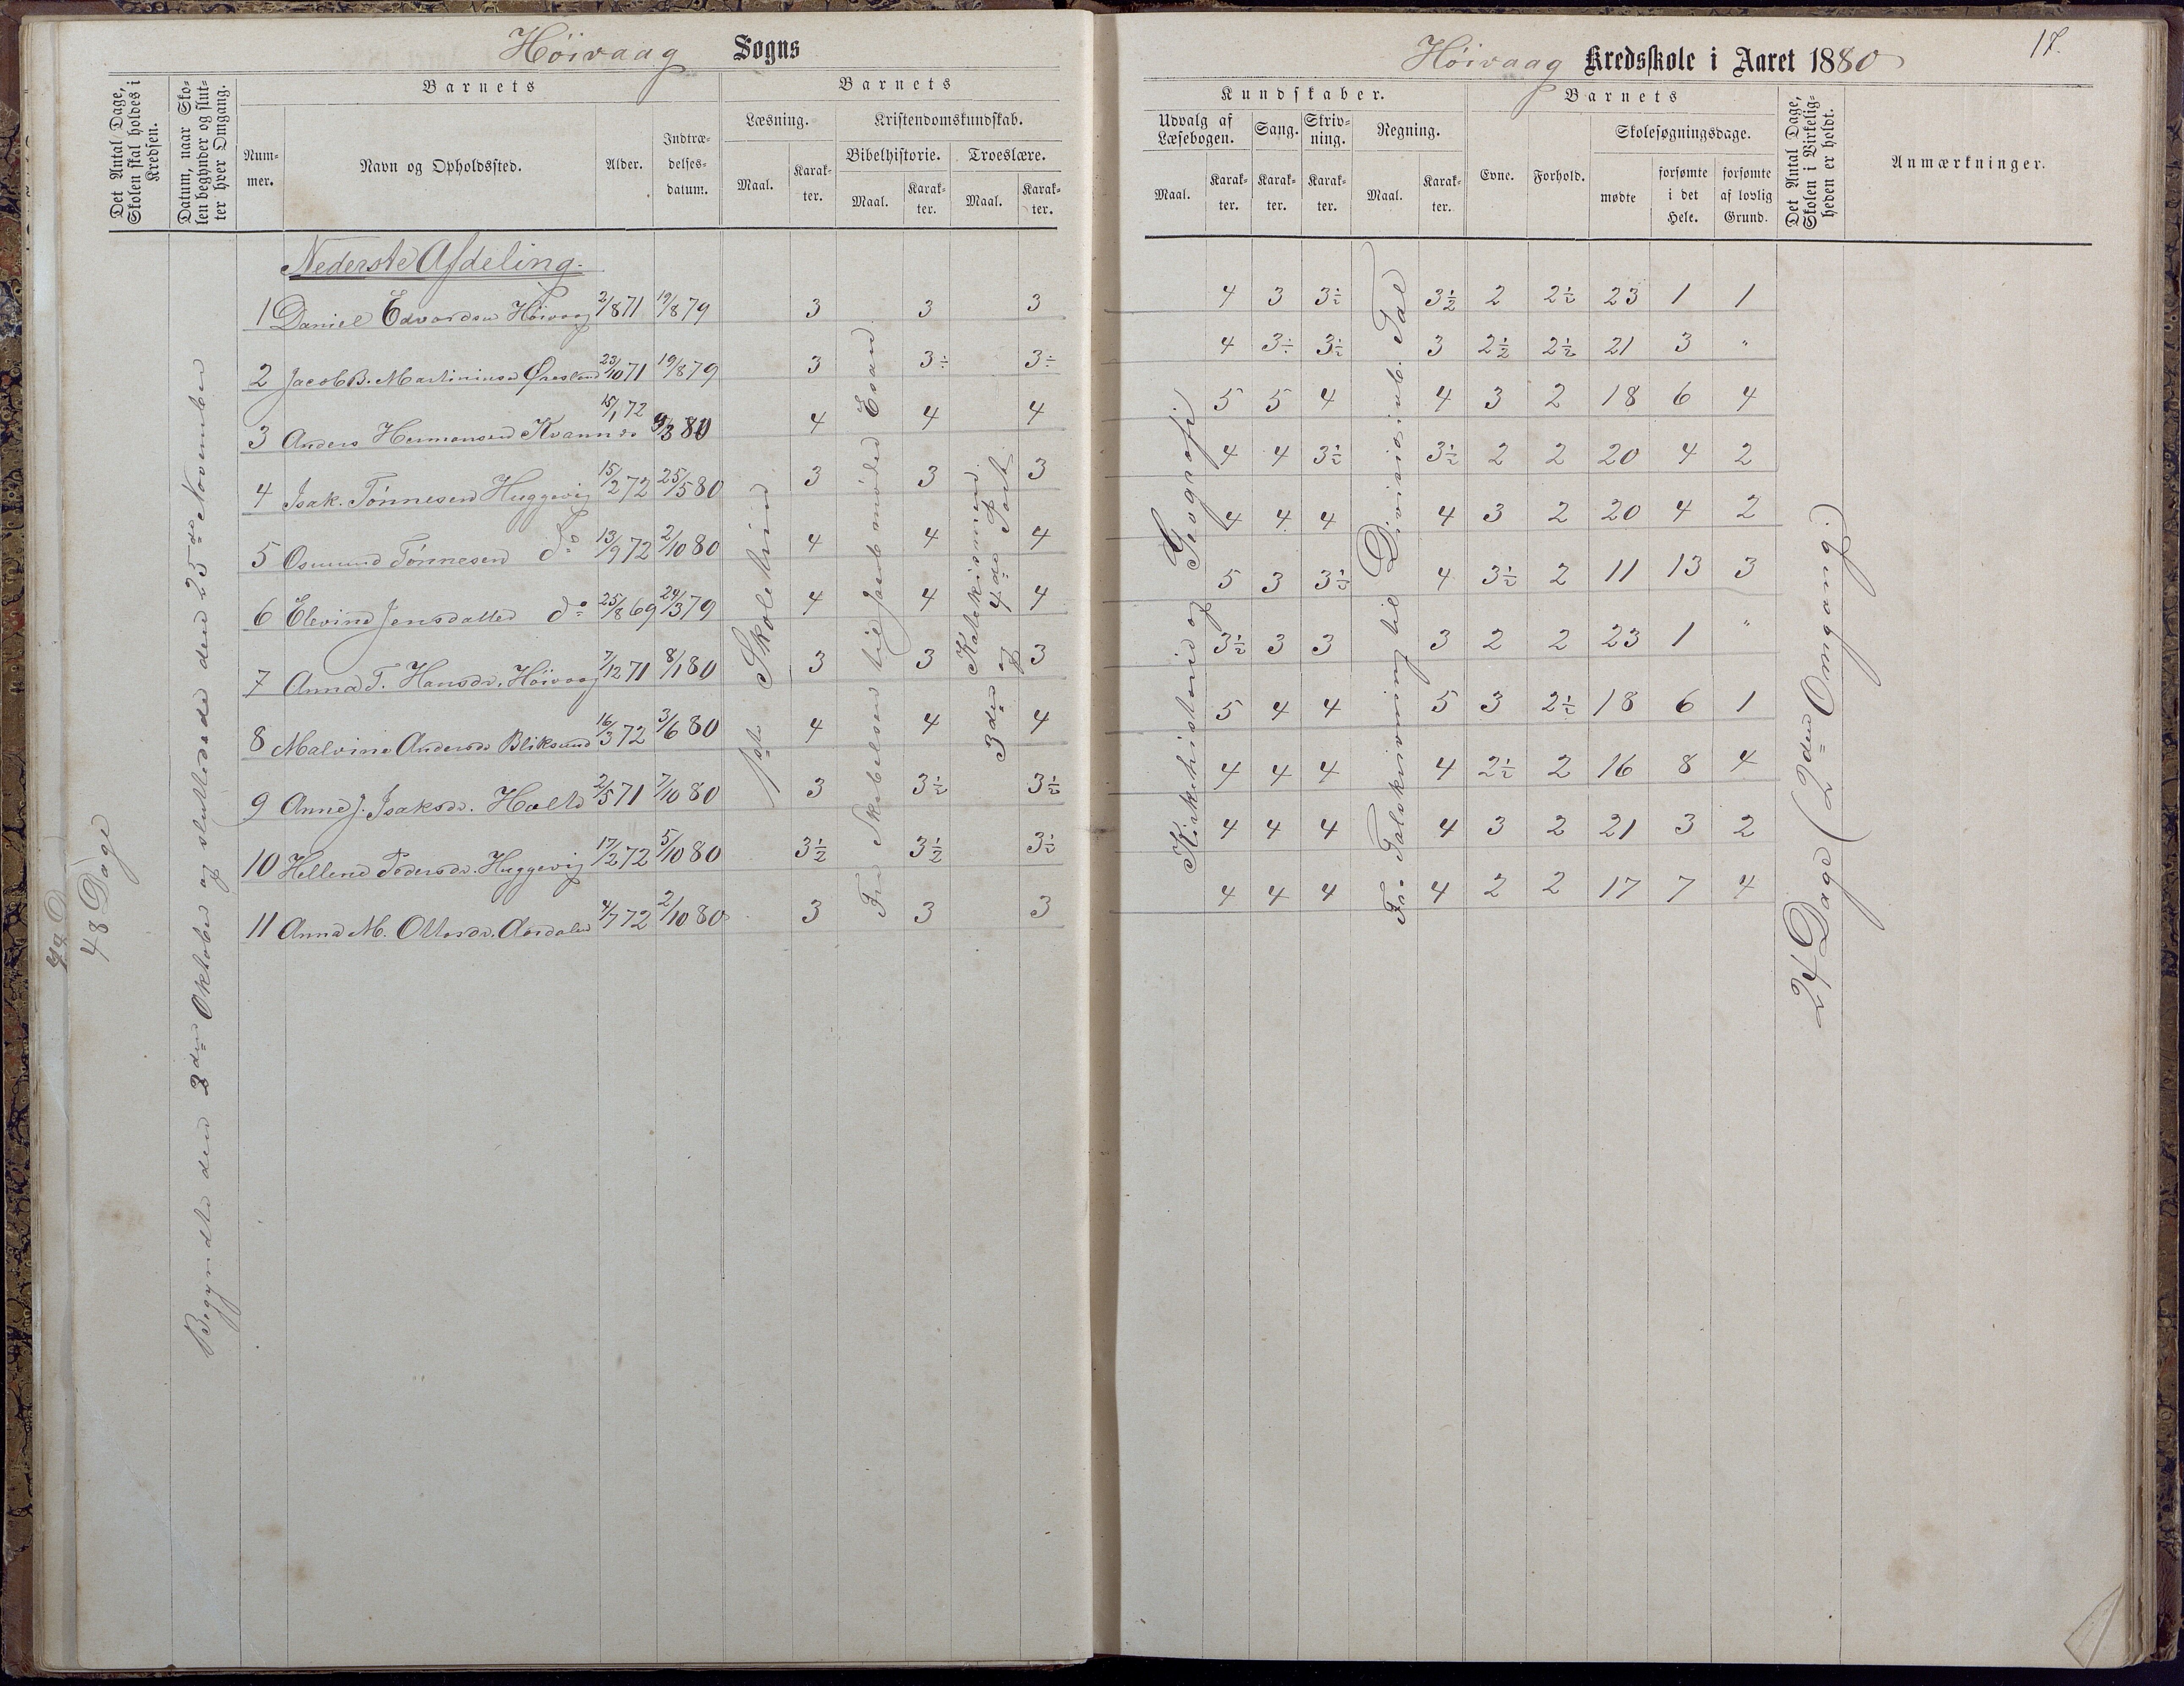 Höivaag Sogns
Det Antal Dage, Skolen skal holdes i Kredsen.
Datum, naar Skolen begynder og slutter hver Omgang.
Barnets
Nummer.
Navn og Opholdssted.
Alder.
Indtrædelsesdatum.
Barnets
Læsning.
Maal.
Karakter.
Kristendomskundskab.
Bibelhistorie.
Maal.
Karakter.
Troeslære.
Maal.
Karakter.
48 Dage
Begyndte den 2den Oktober og sluttede den 25de November
Nederste Afdeling.
1 Daniel Edvardsen Höivaag 2/8 71 19/8 79 3 3 3
2 Jacob B. Martiniusen Øresland 23/10 71 19/8 79 3 3÷ 3÷
3 Anders Hermansen Kvannes 15/1 72 9/3 80 4 4 4
4 Isak Tönnesen Huggevig 15/2 72 25/5 80 3 3 3
5 Osmund Tönnesen do 13/9 72 2/10 80 4 4 4
6 Elevine Jensdatter do 25/8 69 24/3 79 4 4 4
7 Anna T. Hansdr. Höivaag 7/12 71 8/1 80 3 3 3
8 Malvine Andersdr Bliksund 16/3 72 3/6 80 4 4 4
9 Anne J. Isaksdr. Holte 2/5 71 7/10 80 3 3½ 3½
10 Hellene Pedersdr. Huggevig 17/2 72 5/10 80 3½ 3½ 3½
11 Anna M. Ottosdr. Aasdalen 4/7 72 2/10 80 3 3 3
1ste Skoletrin
Fra Skabelsen til Jacob möder Esau
Katekismens
3den og 4de Part
Höivaag Kredsskole i Aaret 1880
17.
Kundskaber.
Udvalg af Læsebogen.
Maal.
Karakter.
Sang.
Karakter.
Skrivning.
Karakter.
Regning.
Maal.
Karakter.
Barnets
Evne.
Forhold.
Skolesøgningsdage.
mødte
forsømte i det Hele.
forsømte af lovlig Grund.
Det Antal Dage, Skolen i Virkeligheden er holdt.
Anmærkninger.
4 3 3½ 3½ 2 2½ 23 1 1
4 3÷ 3½ 3 2½ 2½ 21 3 "
5 5 4 4 3 2 18 6 4
4 4 3½ 3½ 2 2 20 4 2
4 4 4 4 3 2 20 4 2
5 3 3½ 4 3½ 2 11 13 3
3½ 3 3 3 2 2 23 1 "
5 4 4 5 3 2½ 18 6 1
4 4 4 4 2½ 2 16 8 4
4 4 4 4 3 2 21 3 2
4 4 4 4 2 2 17 7 4
Kirkehistorie og Geografi
Fra Talskrivning til Division m. Tal
24 Dage (2den Omgang).